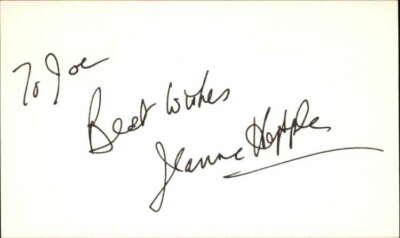 To Joe
Best Wishes
Jeanne Hepple